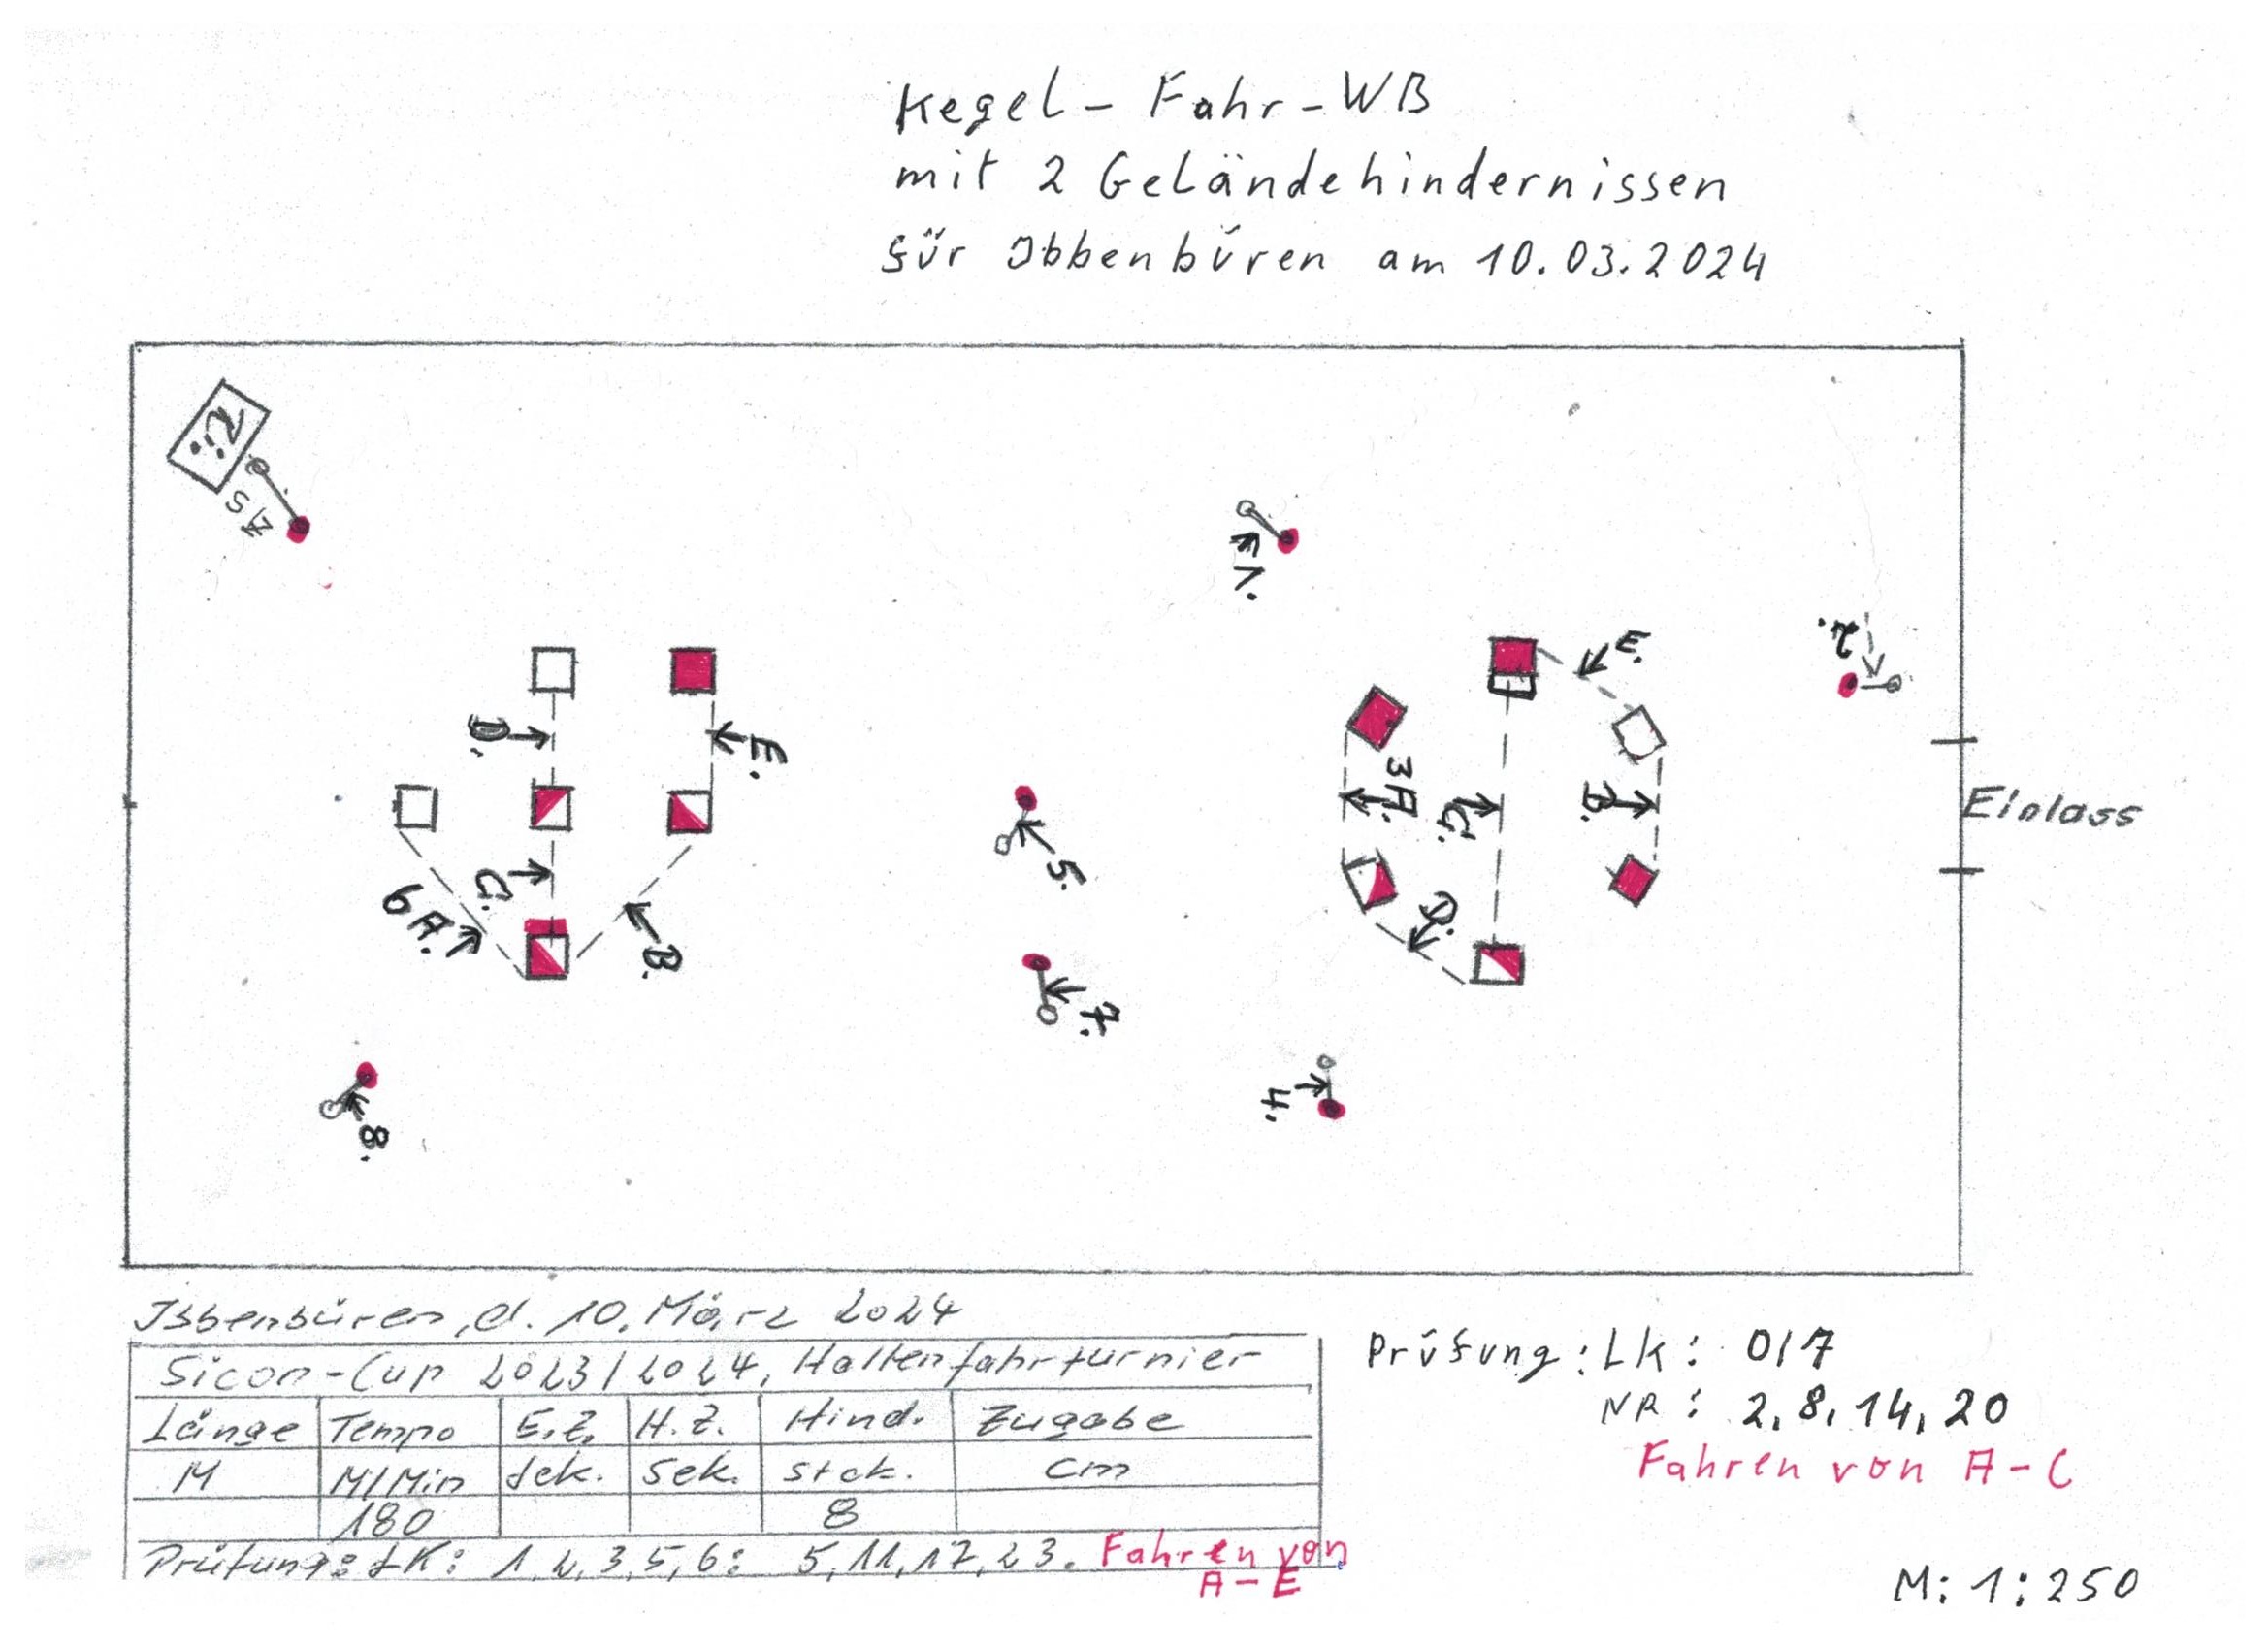 Kegel - Fahr - WB
mit 2 Geländehindernissen
für Ibbenbüren am 10.03.2024
Ri.
ZS
1.
2.
E.
D.
E.
3A.
C.
B.
Einlass
5.
C.
6A.
B.
D.
7.
4.
8.
Ibbenbüren, d. 10. März 2024
Sicon-Cup 2023/2024, Hallenfahrturnier
Länge Tempo E.Z. H.Z. Hind. Zugabe
M M/Min Sek. Sek. Stck. cm
180 8
Prüfung: LK: 1,2,3,5,6: 5,11,17,23. Fahren von
A-E
Prüfung: LK: 0/7
NR: 2,8,14,20
Fahren von A-C
M: 1:250